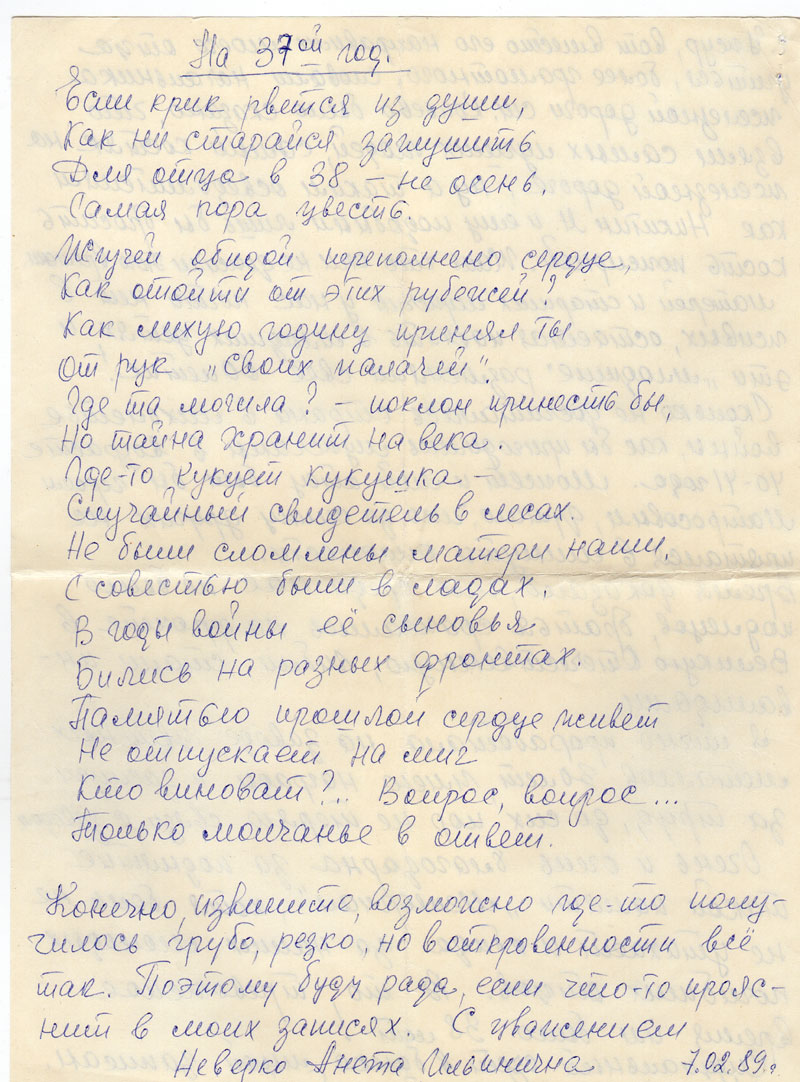 На 37ой год.
Если крик рвется из души,
Как ни старайся заглушить
Для отца в 38 – не осень,
Самая пора цвесть.
Жгучей обидой переполнено сердце,
Как отойти от этих рубежей?
Как лихую годину принял ты
От рук „своих палачей".
Где та могила? – поклон принесть бы,
Но тайна хранит на века.
Где-то кукует кукушка –
Случайный свидетель в лесах.
Не были сломлены матери наши,
С совестью были в ладах.
В годы войны её сыновья
Бились на разных фронтах.
Памятью прошлой сердце живет
Не отпускает на миг
Кто виноват?.. Вопрос, вопрос...
Только молчанье в ответ.
Конечно, извините, возможно где-то полу-
чилось грубо, резко, но в откровенности всё
так. Поэтому буду рада, если что-то прояс-
нит в моих записях. С уважением
Неверко Анета Ильинична 7.02.89г.